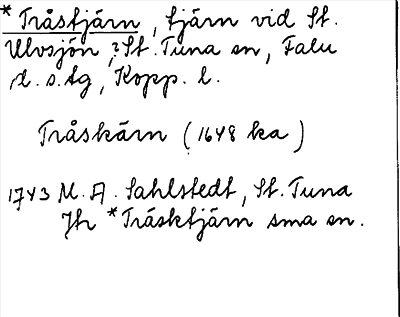 * Tråstjärn, tjärn vid St.
Ulvsjön, St. Tuna sn, Falu
d. s. tg, Kopp. l.
Tråskärn (1648 ka)
1743 M. A. Sahlstedt, St. Tuna
Jfr *Träsktjärn sma sn.